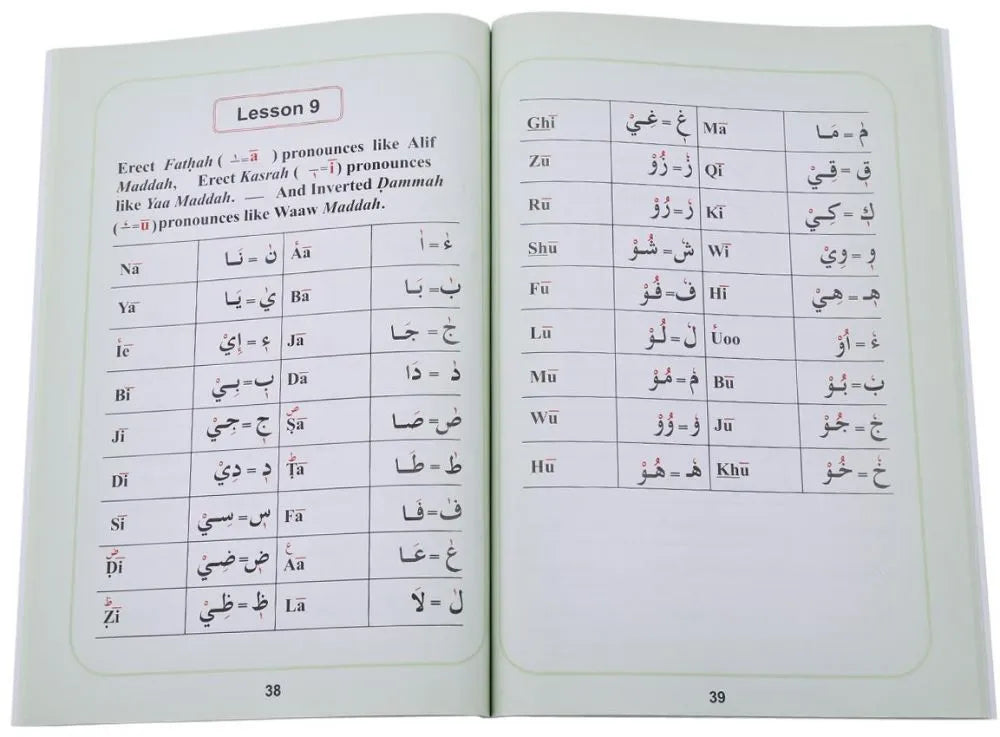 Lesson 9
Erect Fatḥah ( ـٰ =ā ) pronounces like Alif
Maddah, Erect Kasrah ( ـٖ =ī ) pronounces
like Yaa Maddah. — And Inverted Ḍammah
( ـٗ =ū)pronounces like Waaw Maddah.
Nā نٰ = نَـا Áā ءٰ = اٰ
Yā يٰ = يَـا Bā بٰ = بَـا
Íē ءٖ = إِيْ Jā جٰ = جَـا
Bī بٖ = بِـيْ Dā دٰ = دَا
Jī جٖ = جِـيْ Ṣā ص صٰ = صَـا
Dī دٖ = دِيْ Ṭā ط طٰ = طَـا
Sī سٖ = سِـيْ Fā فٰ = فَـا
Ḍī ض ضٖ = ضِـيْ Aā ع عٰ = عَـا
Ẓī ظ ظٖ = ظِـيْ Lā لٰ = لَا
38
Ghī غٖ = غِـيْ Mā مٰ = مَـا
Zū زٗ = زُوْ Qī قٖ = قِـيْ
Rū رٗ = رُوْ Kī كٖ = كِـيْ
Shū شٗ = شُـوْ Wī وٖ = وِيْ
Fū فٗ = فُـوْ Hī هٖـ = هِـيْ
Lū لٗ = لُـوْ Úoo ءٗ = اُوْ
Mū مٗ = مُـوْ Bū بٗ = بُـوْ
Wū وٗ = وُوْ Jū جٗ = جُـوْ
Hū هٗـ = هُـوْ Khū خٗ = خُـوْ
39